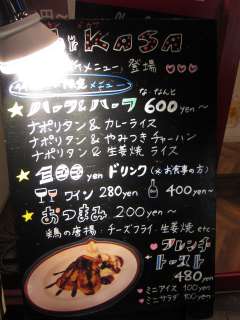 KASA
メニュー」登場
メニュー
なななんと
ハーフ&ハーフ 600yen～
ナポリタン&カレーライス
ナポリタン&やみつきチャーハン
ナポリタン&生姜焼ライス
yen ドリンク(※お食事の方)
ワイン 280yen 400yen～
おつまみ 200yen～
鶏の唐揚・チーズフライ・生姜焼 etc
フレンチ
トースト
480yen
ミニアイス 100yen
ミニサラダ 100yen